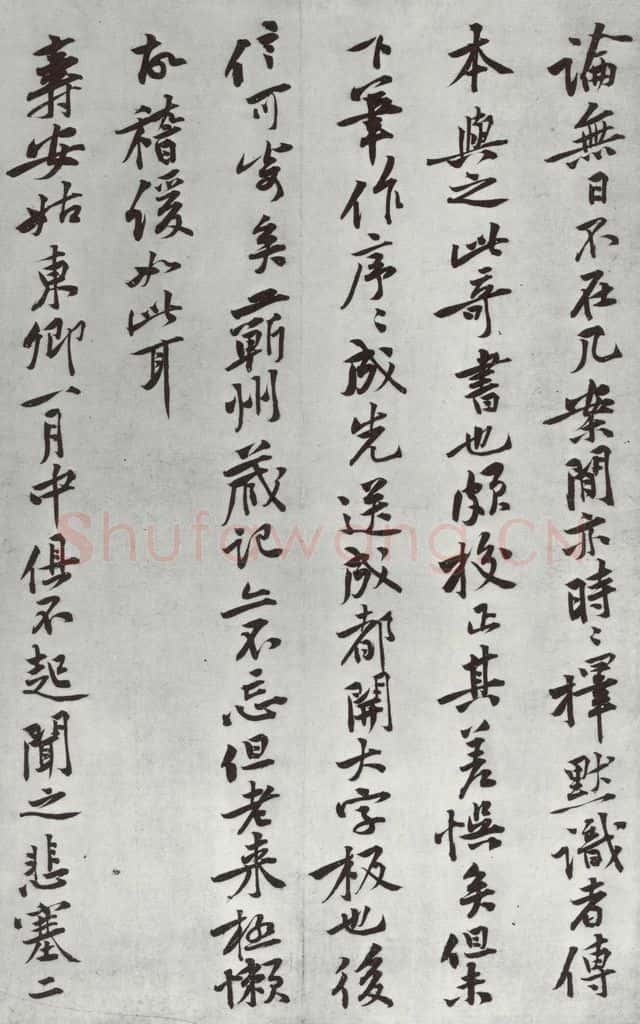 論無日不在几案間亦時〻擇默識者傳
本與之此奇書也頗校正其差悮矣但未
下筆作序〻成先送成都開大字板也後
信可寄矣蘄州藏記亦不忘但老来極懶
故稽緩如此耳
壽安姑東卿一月中俱不起聞之悲塞二
Shufawang.CN